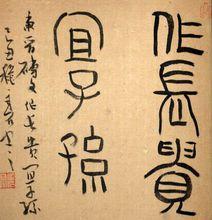 作長貴
宜子孫
東晉磚文作長貴宜子孫
丑穐